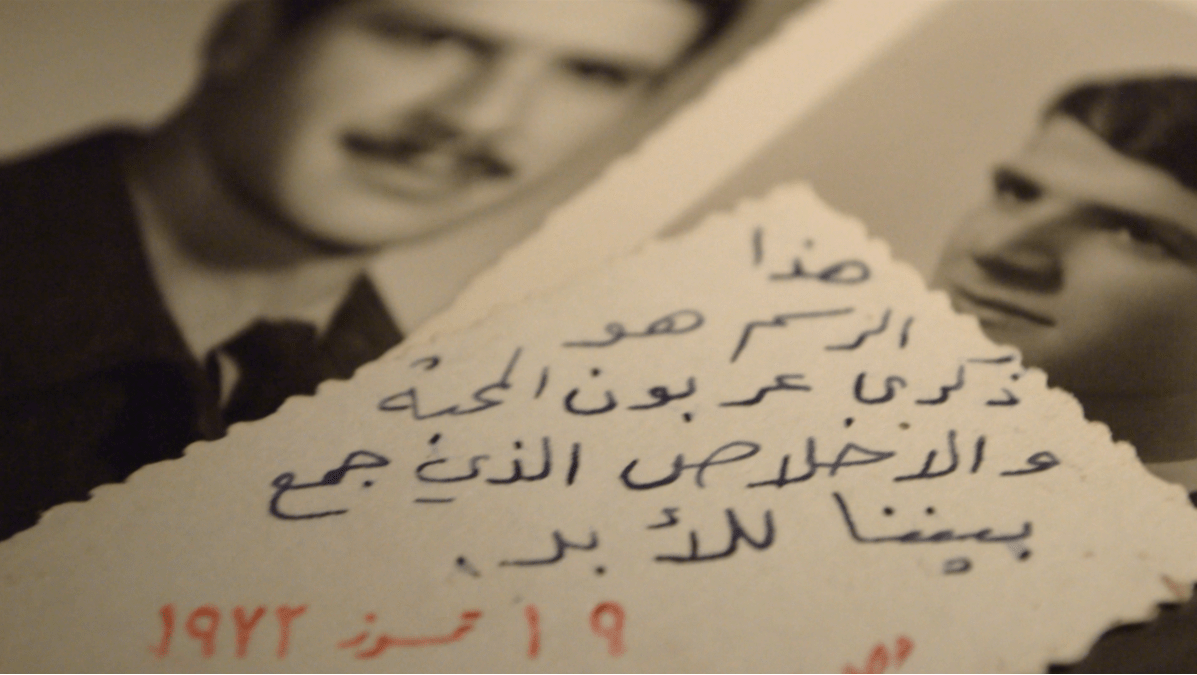 هذا
الرسم هو
ذكرى عربون المحبة
والاخلاص الذي جمع
بيننا للأبد.
١٩ تموز ١٩٧٢